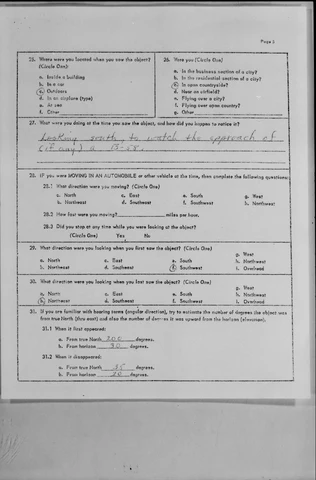 Page 3
25. Where were you located when you saw the object?
(Circle One):
a. Inside a building
b. In a car
c. Outdoors
d. In an airplane (type)
e. At sea
f. Other
26. Were you (Circle One)
a. In the business section of a city?
b. In the residential section of a city?
c. In open countryside?
d. Near an airfield?
e. Flying over a city?
f. Flying over open country?
g. Other
27. What were you doing at the time you saw the object, and how did you happen to notice it?
Looking south, to watch the approach of
(if any) a B-58.
28. IF you were MOVING IN AN AUTOMOBILE or other vehicle at the time, then complete the following questions:
28.1 What direction were you moving? (Circle One)
a. North c. East e. South g. West
b. Northeast d. Southeast f. Southwest h. Northwest
28.2 How fast were you moving? miles per hour.
28.3 Did you stop at any time while you were looking at the object?
(Circle One) Yes No
29. What direction were you looking when you first saw the object? (Circle One)
a. North c. East e. South g. West
b. Northeast d. Southeast f. Southwest h. Northwest
i. Overhead
30. What direction were you looking when you last saw the object? (Circle One)
a. North c. East e. South g. West
b. Northeast d. Southeast f. Southwest h. Northwest
i. Overhead
31. If you are familiar with bearing terms (angular direction), try to estimate the number of degrees the object was
from true North (thru east) and also the number of degrees it was upward from the horizon (elevation).
31.1 When it first appeared:
a. From true North 200 degrees.
b. From horizon degrees.
31.2 When it disappeared:
a. From true North degrees.
b. From horizon 20 degrees.